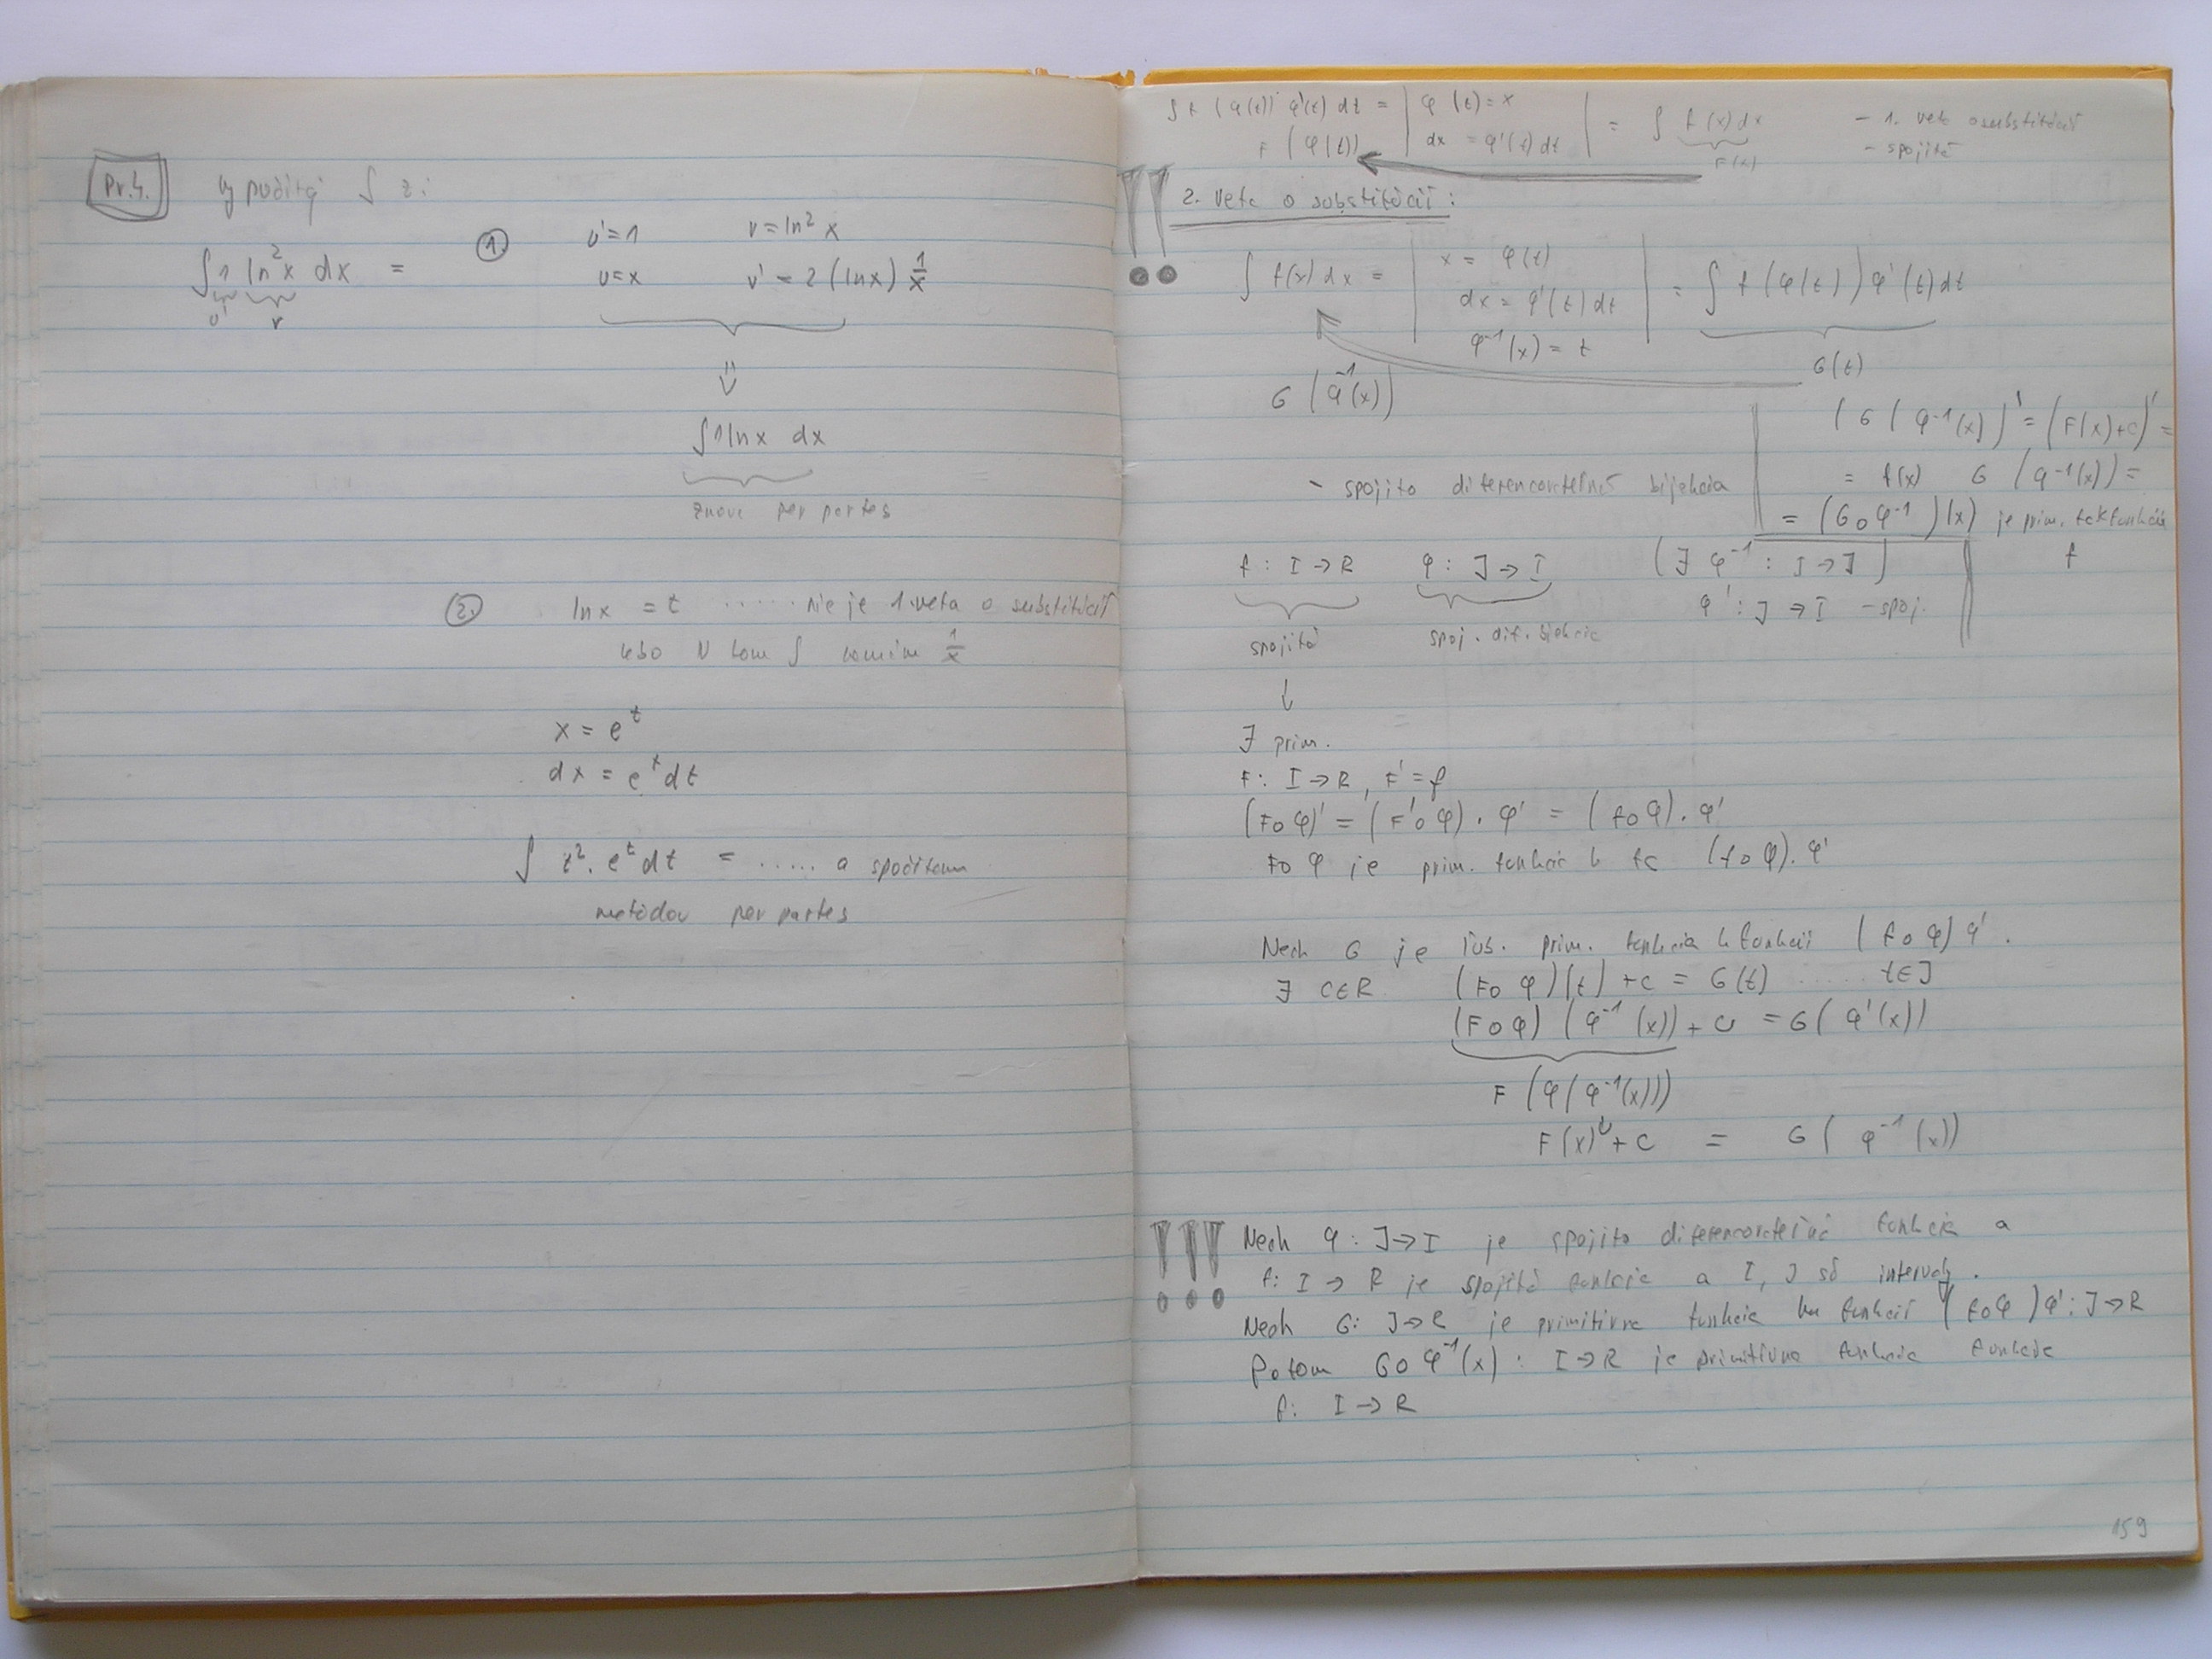 Pr.4. Vypočítaj ∫ z:
∫ 1 ln²x dx =
u' v
① u'=1 v=ln² x
u=x v' = 2 (lnx) 1/x
⇓
∫1 lnx dx
znova per partes
② lnx = t ..... nie je 1. veta o substitúcií
lebo v tom ∫ 1/x
x = e^t
dx = e^t dt
∫ t². e^t dt = ..... a spočítam
metódou per partes
∫ f (φ(t)) φ'(t) dt = | φ (t) = x | = ∫ f(x) dx - 1. veta o substitúcií
F (φ(t)) | dx = φ'(t) dt | F(x) - spojitá
!! 2. veta o substitúcií :
∫ f(x) dx = | x = φ(t) | = ∫ f (φ(t)) φ'(t) dt
dx = φ'(t) dt
φ⁻¹(x) = t
G(t)
G (φ⁻¹(x))
(G ( φ⁻¹(x))' = (F(x)+c)' =
= f(x) G (φ⁻¹(x)) =
= (G o φ⁻¹)(x) je prim. fcie
f
- spojito diferencovateľná bijekcia
f : I → R φ : J → I (∃ φ⁻¹ : I → J)
φ' : J → I - spoj.
spojitá spoj. dif. bijekcia
↓
∃ prim.
F : I → R, F' = f
(F o φ)' = (F' o φ) . φ' = (f o φ) . φ'
F o φ je prim. funkcia k fc (f o φ) . φ'
Nech G je ľub. prim. funkcia k funkcií (f o φ) φ' .
∃ c∈R (F o φ)(t) + c = G(t) ..... t∈J
(F o φ) (φ⁻¹(x)) + c = G( φ'(x))
F (φ(φ⁻¹(x)))
F(x) + c = G( φ⁻¹(x))
!!! Nech φ : J → I je spojito diferencovateľná funkcia a
f: I → R je spojitá funkcia a I, J sú intervaly.
Nech G: J → R je primitívna funkcia ku funkcií (f o φ) φ' : J → R
Potom G o φ⁻¹(x) : I → R je primitívna funkcia funkcie
f: I → R
159